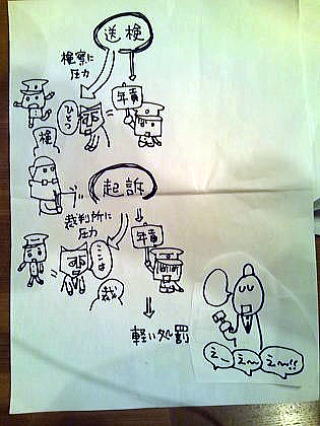 送検
検察に
圧力
ひとつ
年貢
検
起訴
裁判所に
圧力
ここは
年貢
裁
軽い処罰
えー
えー
えー!!